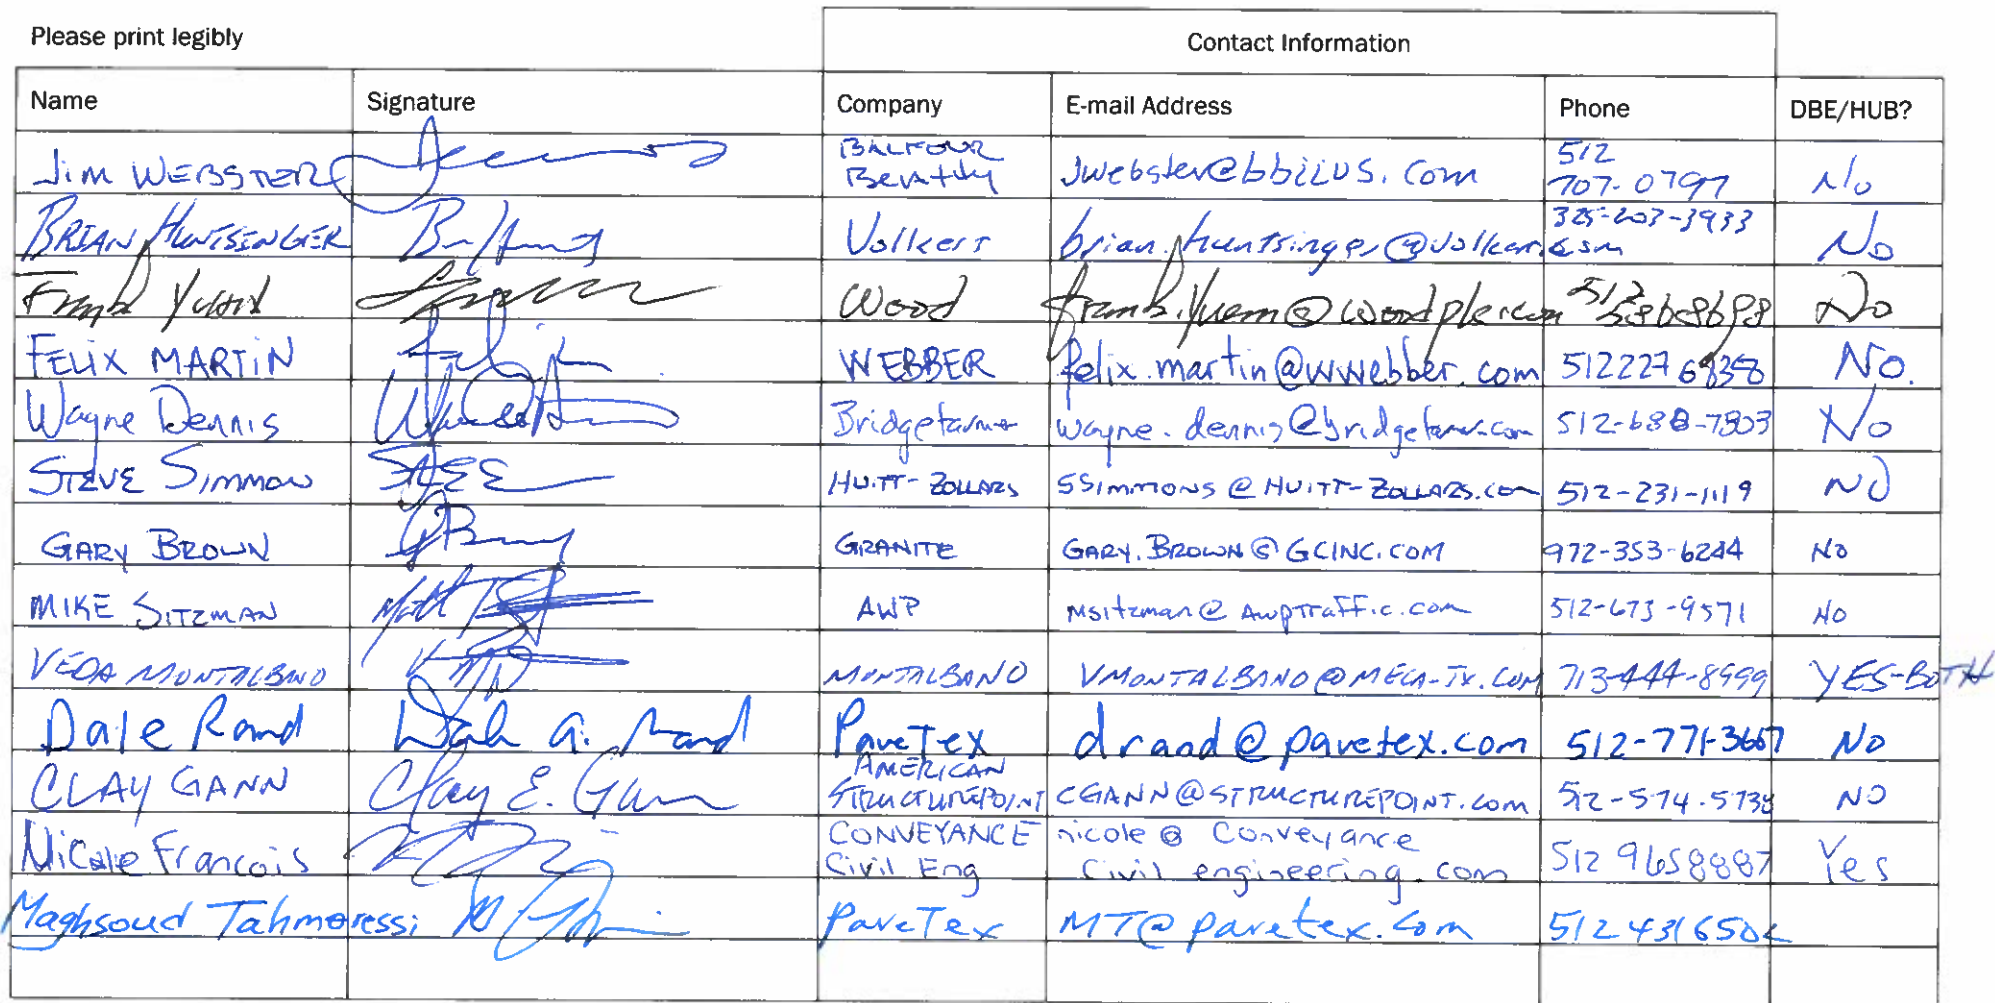 Please print legibly
Contact Information
Name Signature Company E-mail Address Phone DBE/HUB?
Jim WEBSTER BALFOUR Beatty Jwebster@bbiius.com 512 707-0797 No
BRIAN HUNTSINGER Volkert brian.huntsinger@volkert.com 325-203-3933 No
Frank Wood No
FELIX MARTIN WEBBER felix.martin@wwebber.com 512227 6838 No.
Wayne Dennis Bridgefarmer wayne.dennis@bridgefarmer.com 512-688-7803 No
STEVE SIMMONS HUITT-ZOLLARS SSIMMONS@HUITT-ZOLLARS.COM 512-231-1119 NO
GARY BROWN GRANITE GARY.BROWN@GCINC.COM 972-353-6244 NO
MIKE SITZMAN AWP Msitzman@AwpTraffic.com 512-673-9571 NO
VEDA MONTALBANO MONTALBANO VMONTALBANO@MECA-TX.COM 713-444-8999 YES-BOTH
Dale Rand Dale A. Rand PaveTex drand@pavetex.com 512-771-3667 No
CLAY GANN Clay E. Gann AMERICAN STRUCTUREPOINT CGANN@STRUCTUREPOINT.COM 512-574-5738 NO
Nicole Francois CONVEYANCE Civil Eng nicole@Conveyance Civil engineering.com 512 9658887 Yes
Maghsoud Tahmoressi PaveTex MT@pavetex.com